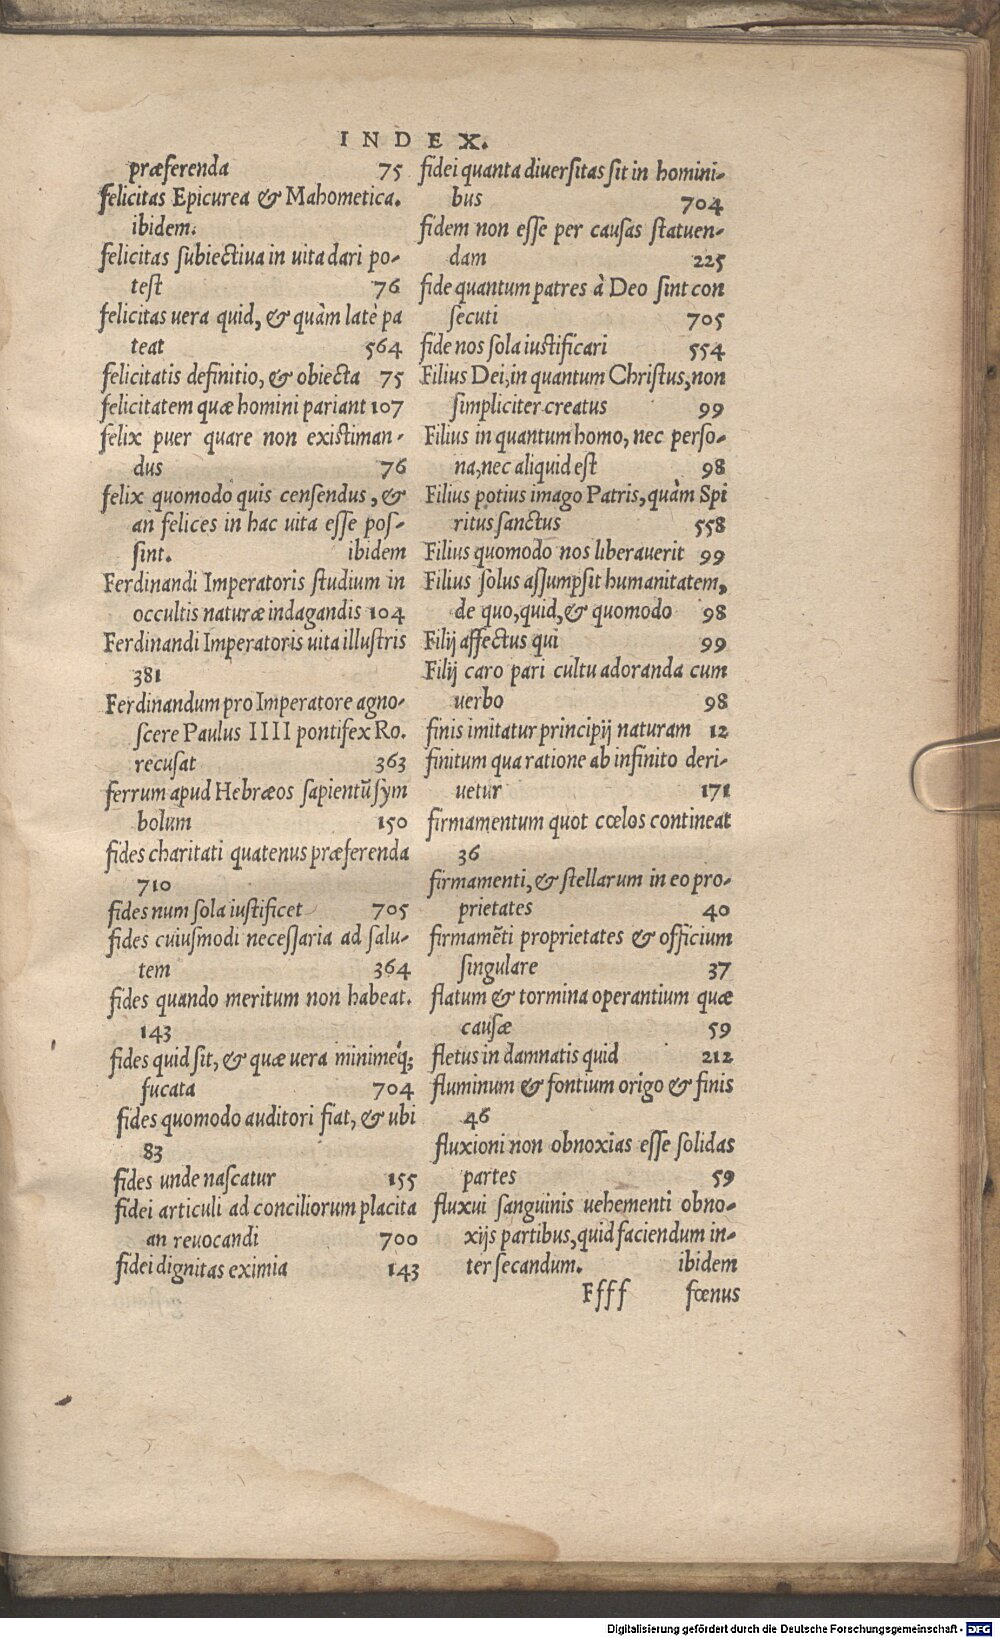 INDEX.
præferenda 75
felicitas Epicurea & Mahometica.
ibidem.
felicitas subiectiua in uita dari po-
test 76
felicitas uera quid, & quàm latè pa
teat 564
felicitatis definitio, & obiecta 75
felicitatem quæ homini pariant 107
felix puer quare non existiman-
dus 76
felix quomodo quis censendus, &
an felices in hac uita esse pos-
sint. ibidem
Ferdinandi Imperatoris studium in
occultis naturæ indagandis 104
Ferdinandi Imperatoris uita illustris
381
Ferdinandum pro Imperatore agno-
scere Paulus IIII pontifex Ro.
recusat 363
ferrum apud Hebræos sapientū sym
bolum 150
fides charitati quatenus præferenda
710
fides num sola iustificet 705
fides cuiusmodi necessaria ad salu-
tem 364
fides quando meritum non habeat.
143
fides quid sit, & quæ uera minimeq́;
fucata 704
fides quomodo auditori fiat, & ubi
83
fides unde nascatur 155
fidei articuli ad conciliorum placita
an reuocandi 700
fidei dignitas eximia 143
fidei quanta diuersitas sit in homini-
bus 704
fidem non esse per causas statuen-
dam 225
fide quantum patres à Deo sint con
secuti 705
fide nos sola iustificari 554
Filius Dei, in quantum Christus, non
simpliciter creatus 99
Filius in quantum homo, nec perso-
na, nec aliquid est 98
Filius potius imago Patris, quàm Spi
ritus sanctus 558
Filius quomodo nos liberauerit 99
Filius solus assumpsit humanitatem,
de quo, quid, & quomodo 98
Filij affectus qui 99
Filij caro pari cultu adoranda cum
uerbo 98
finis imitatur principij naturam 12
finitum qua ratione ab infinito deri-
uetur 171
firmamentum quot cœlos contineat
36
firmamenti, & stellarum in eo pro-
prietates 40
firmamēti proprietates & officium
singulare 37
flatum & tormina operantium quæ
causæ 59
fletus in damnatis quid 212
fluminum & fontium origo & finis
46
fluxioni non obnoxias esse solidas
partes 59
fluxui sanguinis uehementi obno-
xijs partibus, quid faciendum in-
ter secandum. ibidem
Ffff fœnus
Digitalisierung gefördert durch die Deutsche Forschungsgemeinschaft - DFG